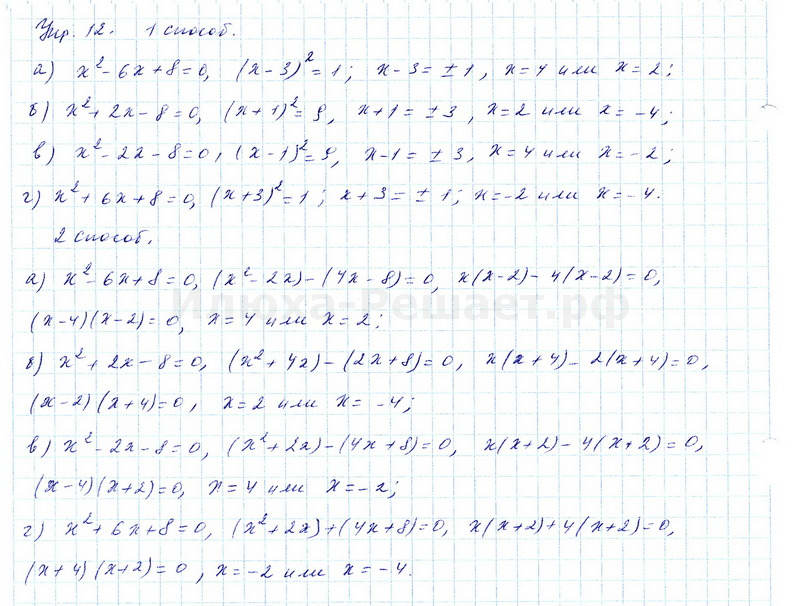 Упр. 12. 1 способ.
а) x² - 6x + 8 = 0, (x - 3)² = 1; x - 3 = ± 1, x = 4 или x = 2;
б) x² + 2x - 8 = 0, (x + 1)² = 9, x + 1 = ± 3, x = 2 или x = -4;
в) x² - 2x - 8 = 0, (x - 1)² = 9, x - 1 = ± 3, x = 4 или x = -2;
г) x² + 6x + 8 = 0, (x + 3)² = 1; x + 3 = ± 1; x = -2 или x = -4.
2 способ.
а) x² - 6x + 8 = 0, (x² - 2x) - (4x - 8) = 0, x(x - 2) - 4(x - 2) = 0,
Илюха-Решает.рф
(x - 4)(x - 2) = 0, x = 4 или x = 2;
б) x² + 2x - 8 = 0, (x² + 4x) - (2x + 8) = 0, x(x + 4) - 2(x + 4) = 0,
(x - 2)(x + 4) = 0, x = 2 или x = -4;
в) x² - 2x - 8 = 0, (x² + 2x) - (4x + 8) = 0, x(x + 2) - 4(x + 2) = 0,
(x - 4)(x + 2) = 0, x = 4 или x = -2;
г) x² + 6x + 8 = 0, (x² + 2x) + (4x + 8) = 0, x(x + 2) + 4(x + 2) = 0,
(x + 4)(x + 2) = 0, x = -2 или x = -4.